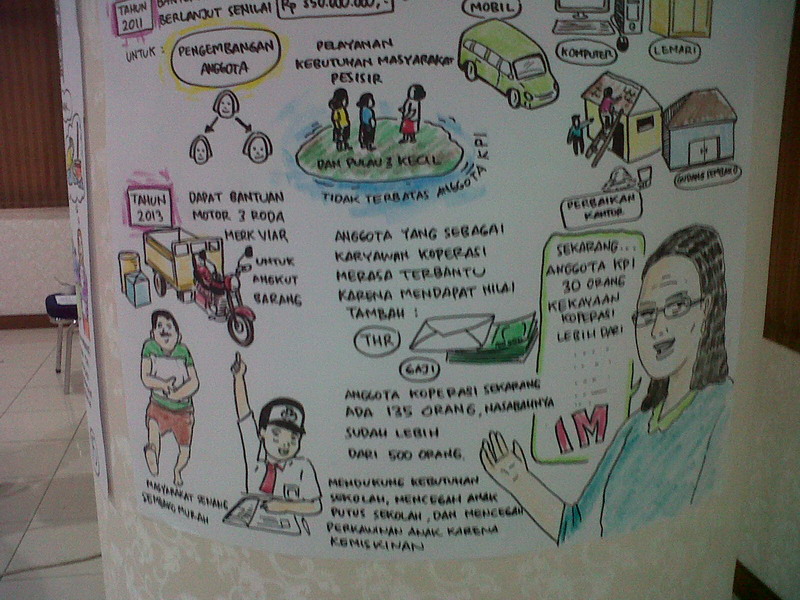 TAHUN
2011
BERLANJUT SENILAI
Rp 350.000.000,-
MOBIL
KOMPUTER
LEMARI
UNTUK :
PENGEMBANGAN
ANGGOTA
PELAYANAN
KEBUTUHAN MASYARAKAT
PESISIR
DAN PULAU 3 KECIL
TIDAK TERBATAS ANGGOTA KPI
GUDANG SEMBAKO
PERBAIKAN
KANTOR
TAHUN
2013
DAPAT BANTUAN
MOTOR 3 RODA
MERK VIAR
UNTUK
ANGKUT
BARANG
ANGGOTA YANG SEBAGAI
KARYAWAN KOPERASI
MERASA TERBANTU
KARENA MENDAPAT NILAI
TAMBAH :
THR
GAJI
SEKARANG...
ANGGOTA KPI
30 ORANG
KEKAYAAN
KOPERASI
LEBIH DARI
1M
ANGGOTA KOPERASI SEKARANG
ADA 135 ORANG, NASABAHNYA
SUDAH LEBIH
DARI 500 ORANG.
MASYARAKAT SENANG
SEMBAKO MURAH
MENDUKUNG KEBUTUHAN
SEKOLAH, MENCEGAH ANAK
PUTUS SEKOLAH, DAN MENCEGAH
PERKAWINAN ANAK KARENA
KEMISKINAN